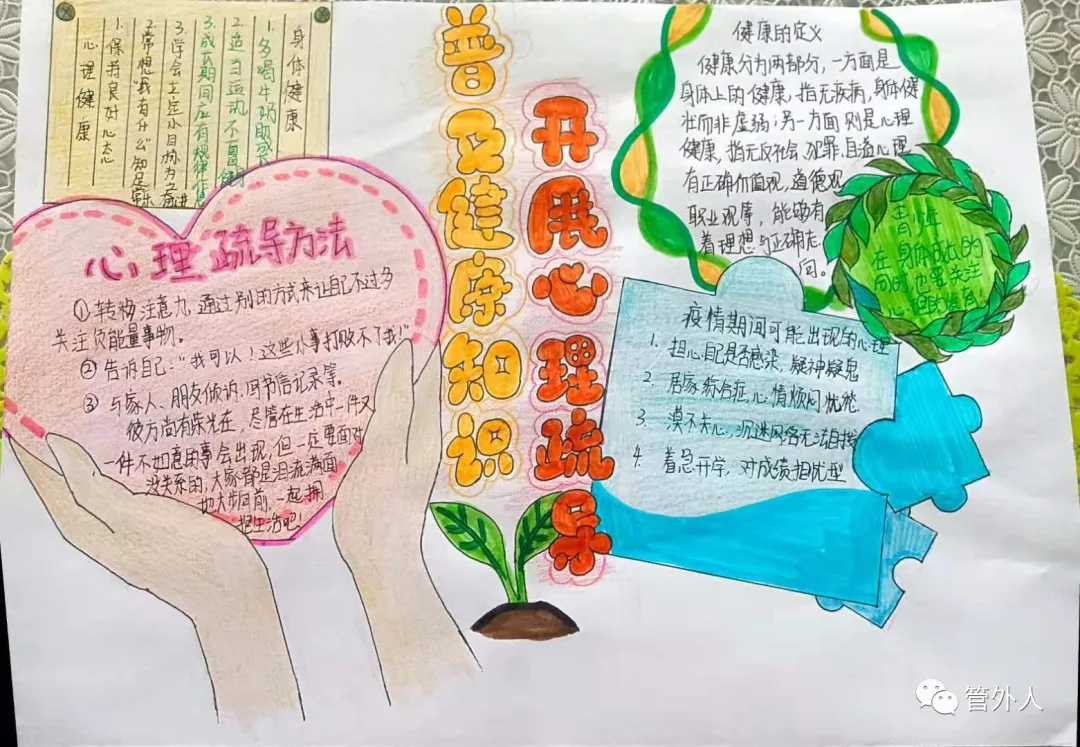 身体健康
1. 多喝牛奶助成长
2. 适当运动, 不冒
3. 成长期间应有规律作
心理健康
1. 保持良好心态
2. 常想"我有什么"知足常乐
3. 学会立定小目标为之奋进
心理疏导方法
① 转移注意力, 通过别的方式来让自己不过多
关注负能量事物。
② 告诉自己:"我可以!这些小事打败不了我!"
③ 与家人、朋友倾诉, 写书信记录等。
彼方尚有荣光在, 尽管在生活中一件又
一件不如意的事会出现, 但一定要面对
没关系的, 大家都是泪流满面
把大步向前, 一起拥
抱生活吧!
普及健康知识
开展心理疏导
健康的定义
健康分为两部分, 一方面是
身体上的健康, 指无疾病, 身体健
壮而非虚弱;另一方面则是心理
健康, 指无反社会、犯罪、自盗心理
有正确价值观, 道德观
职业观等, 能够有
着理想与正确志
向。
青少年
在身体成长的
同时也要关注
疫情期间可能出现的心理
1. 担心自己是否感染, 疑神疑鬼
2. 居家综合症, 心情烦闷忧愁
3. 漠不关心, 沉迷网络无法自拔
4. 着急开学, 对成绩担忧型
管外人